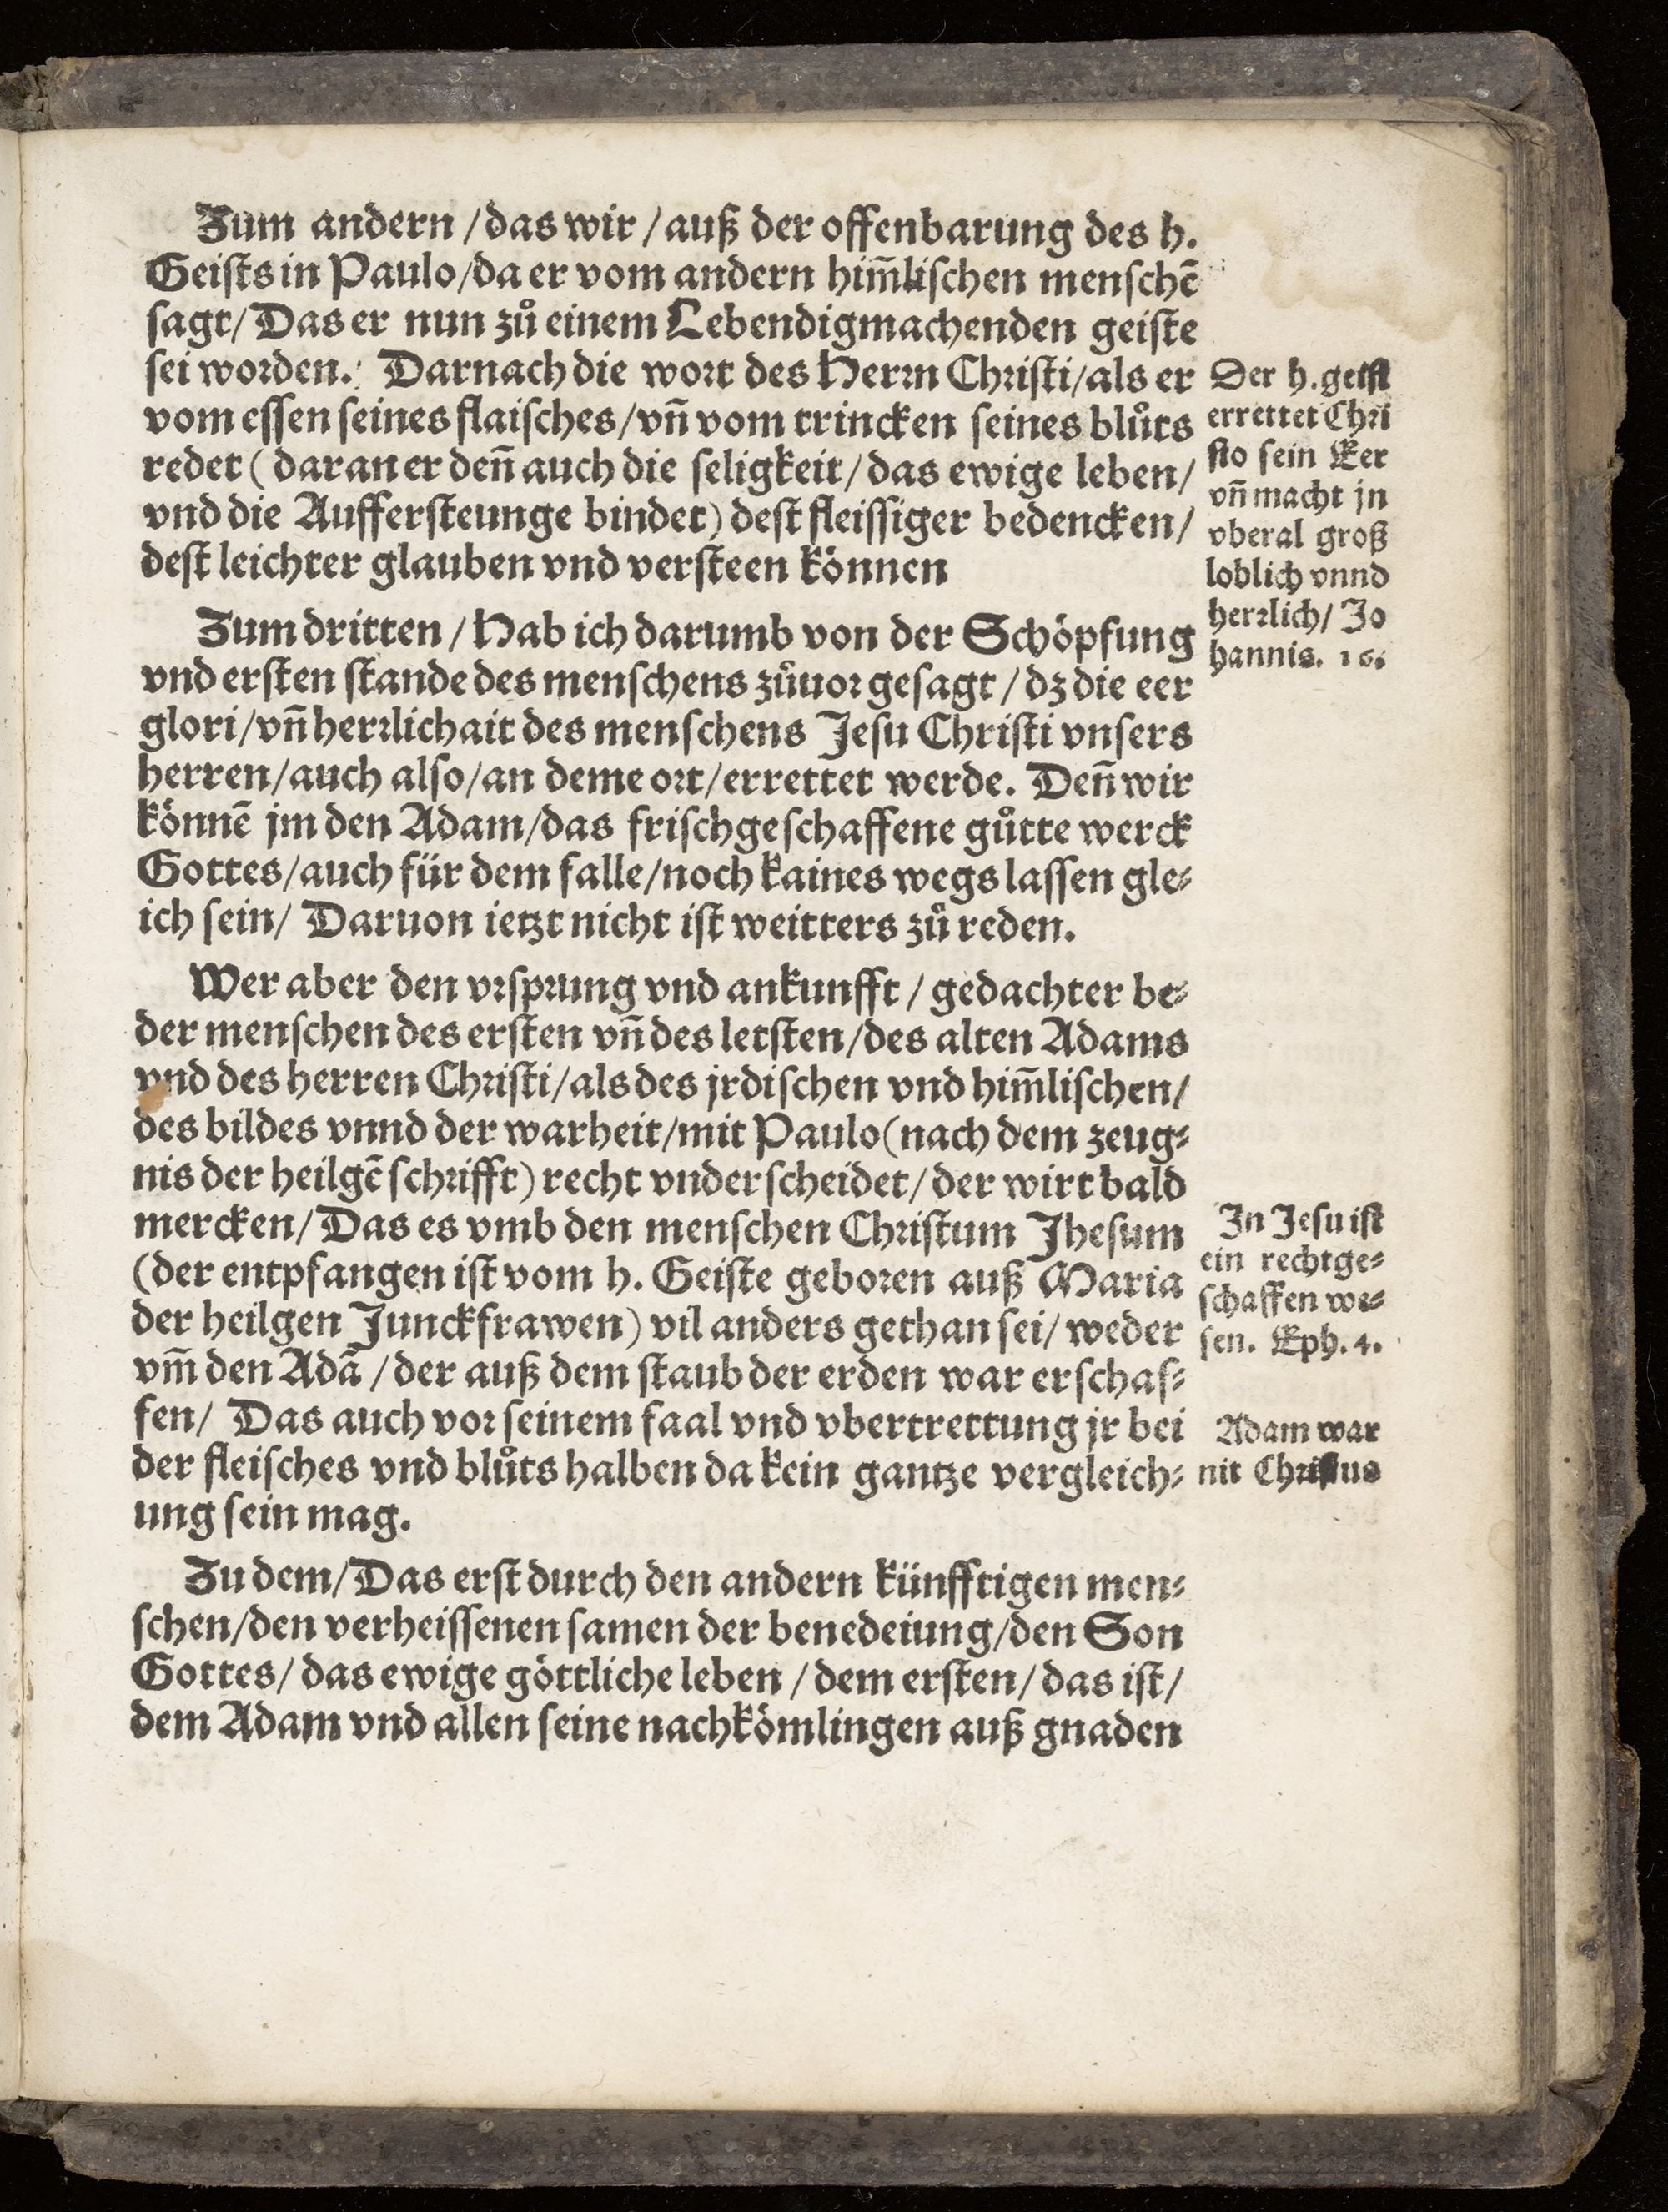 Zum andern /das wir /auß der offenbarung des h.
Geists in Paulo/da er vom andern him̄lischen menschē
sagt/ Das er nun zů einem Lebendigmachenden geiste
sei worden. Darnach die wort des Herrn Christi/als er
vom essen seines flaisches/vn̄ vom trincken seines blůts
redet ( daran er den̄ auch die seligkeit/ das ewige leben/
vnd die Auffersteunge bindet) dest fleissiger bedencken/
dest leichter glauben vnd versteen können
Der h. geist
errettet Chri
sto sein Eer
vn̄ macht jn
vberal groß
loblich vnnd
herrlich/ Jo
hannis. 16.
Zum dritten / Hab ich darumb von der Schöpfung
vnd ersten stande des menschens zůuor gesagt / dz die eer
glori/vn̄ herrlichait des menschens Jesu Christi vnsers
herren/auch also/an deme ort/errettet werde. Den̄ wir
könnē jm den Adam/das frischgeschaffene gůtte werck
Gottes/auch für dem falle/noch kaines wegs lassen gle⸗
ich sein/ Daruon ietzt nicht ist weitters zů reden.
Wer aber den vrsprung vnd ankunfft / gedachter be⸗
der menschen des ersten vn̄ des letsten/des alten Adams
vnd des herren Christi/als des jrdischen vnd him̄lischen/
des bildes vnnd der warheit/mit Paulo(nach dem zeug⸗
nis der heilgē schrifft) recht vnderscheidet/ der wirt bald
mercken/ Das es vmb den menschen Christum Jhesum
(der entpfangen ist vom h. Geiste geboren auß Maria
der heilgen Junckfrawen) vil anders gethan sei/ weder
vm̄ den Adā / der auß dem staub der erden war erschaf⸗
fen/ Das auch vor seinem faal vnd vbertrettung jr bei
der fleisches vnd blůts halben da kein gantze vergleich⸗
ung sein mag.
In Jesu ist
ein rechtge⸗
schaffen we⸗
sen. Eph. 4.
Adam war
nit Christus
Zu dem/Das erst durch den andern künfftigen men⸗
schen/den verheissenen samen der benedeiung/den Son
Gottes/ das ewige göttliche leben / dem ersten/ das ist/
dem Adam vnd allen seine nachkömlingen auß gnaden